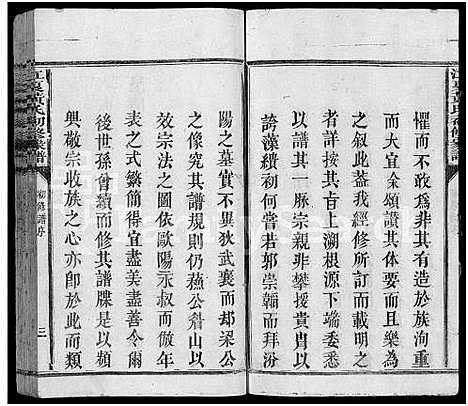 懼而不敢爲非其有造於族洵重
而大宜余頌讚其体要而且樂爲
之叙此予我經修所訂而載明之
者詳按其肓上溯根源下端委悉
以其一脉宗親非攀援貴胄以
誇藻繢初何嘗若郭崇韜而拜汾
陽之墓實不異狄武襄而却梁公
之像究其譜規則仍蘓公嵡山以
效宗法之圖依歐陽永叔而倣年
表之式繁簡得宜盡美盡善令爾
後世孫曾續而修其譜牒是以頻
興敬宗收族之心亦卽於此而類
江夏黃氏初修家譜
初修譜序
三
江夏黃氏初修家譜